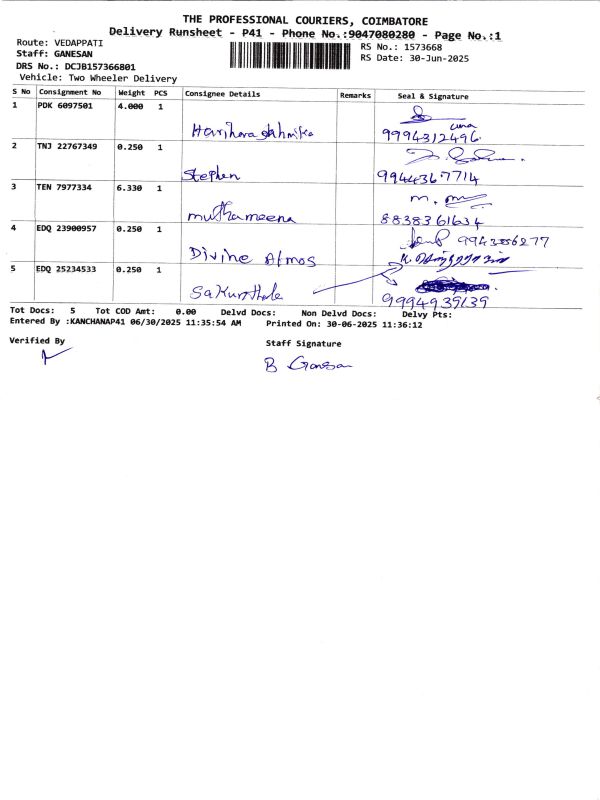 THE PROFESSIONAL COURIERS, COIMBATORE
Delivery Runsheet - P41 - Phone No.:9047080280 - Page No.:1
Route: VEDAPPATI
Staff: GANESAN
DRS No.: DCJB157366801
Vehicle: Two Wheeler Delivery
RS No.: 1573668
RS Date: 30-Jun-2025
S No Consignment No Weight PCS Consignee Details Remarks Seal & Signature
1 PDK 6097501 4.000 1
9994312496
2 TNJ 22767349 0.250 1
Stephen 9944367714
3 TEN 7977334 6.330 1 M.
muthameena 8838361634
4 EDQ 23900957 0.250 1
Divine Atmos
5 EDQ 25234533 0.250 1
9994939139
Tot Docs: 5 Tot COD Amt: 0.00 Delvd Docs: Non Delvd Docs: Delvy Pts:
Entered By :KANCHANAP41 06/30/2025 11:35:54 AM Printed On: 30-06-2025 11:36:12
Verified By Staff Signature
B